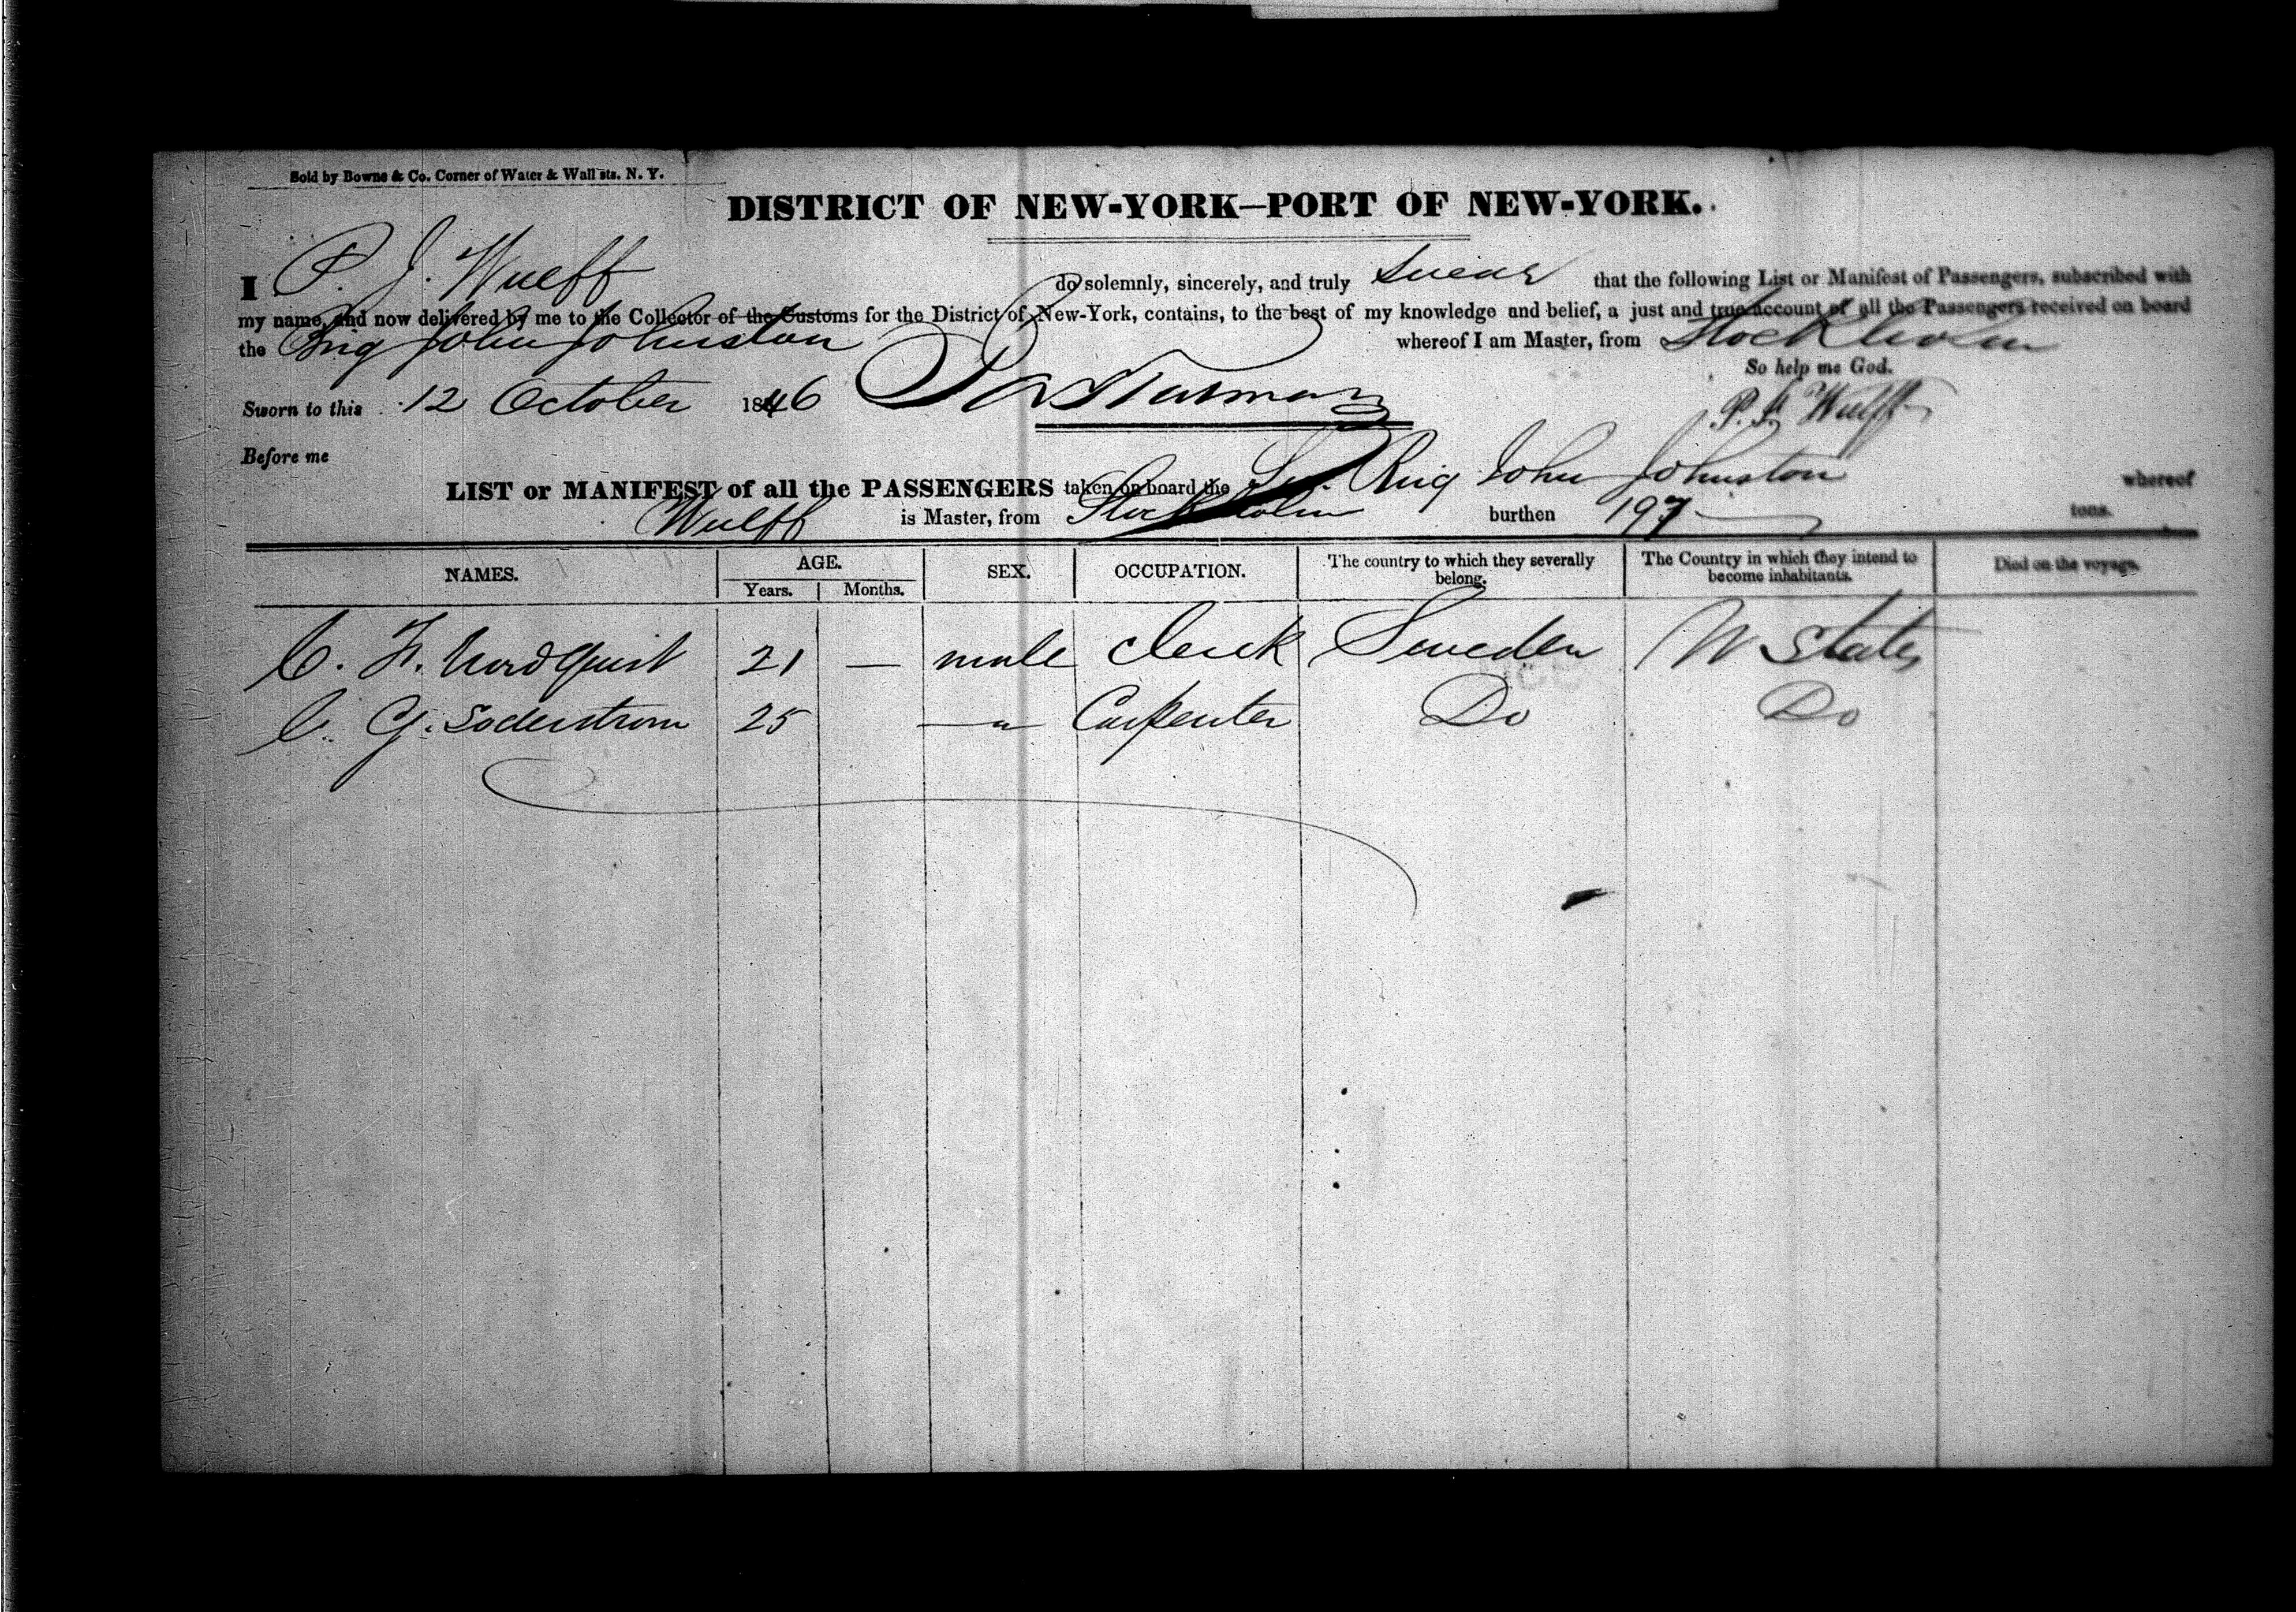 Sold by Bowne & Co. Corner of Water & Wall sts. N. Y.
DISTRICT OF NEW-YORK—PORT OF NEW-YORK.
I P. J. Wulff do solemnly, sincerely, and truly swear that the following List or Manifest of Passengers, subscribed with
my name, and now delivered by me to the Collector of the Customs for the District of New-York, contains, to the best of my knowledge and belief, a just and true account of all the Passengers received on board
the Brig John Johnston whereof I am Master, from Stockholm
So help me God.
Sworn to this 12 October 1846 P. J. Wulff
Before me
LIST or MANIFEST of all the PASSENGERS taken on board the Sw. Brig John Johnston whereof
Wulff is Master, from Stockholm burthen 197 tons.
NAMES. AGE. Years. Months. SEX. OCCUPATION. The country to which they severally belong. The Country in which they intend to become inhabitants. Died on the voyage.
C. F. Nordquist 21 — male Clerk Sweden U States
C. G. Soderstrom 25 —"— Carpenter Do Do